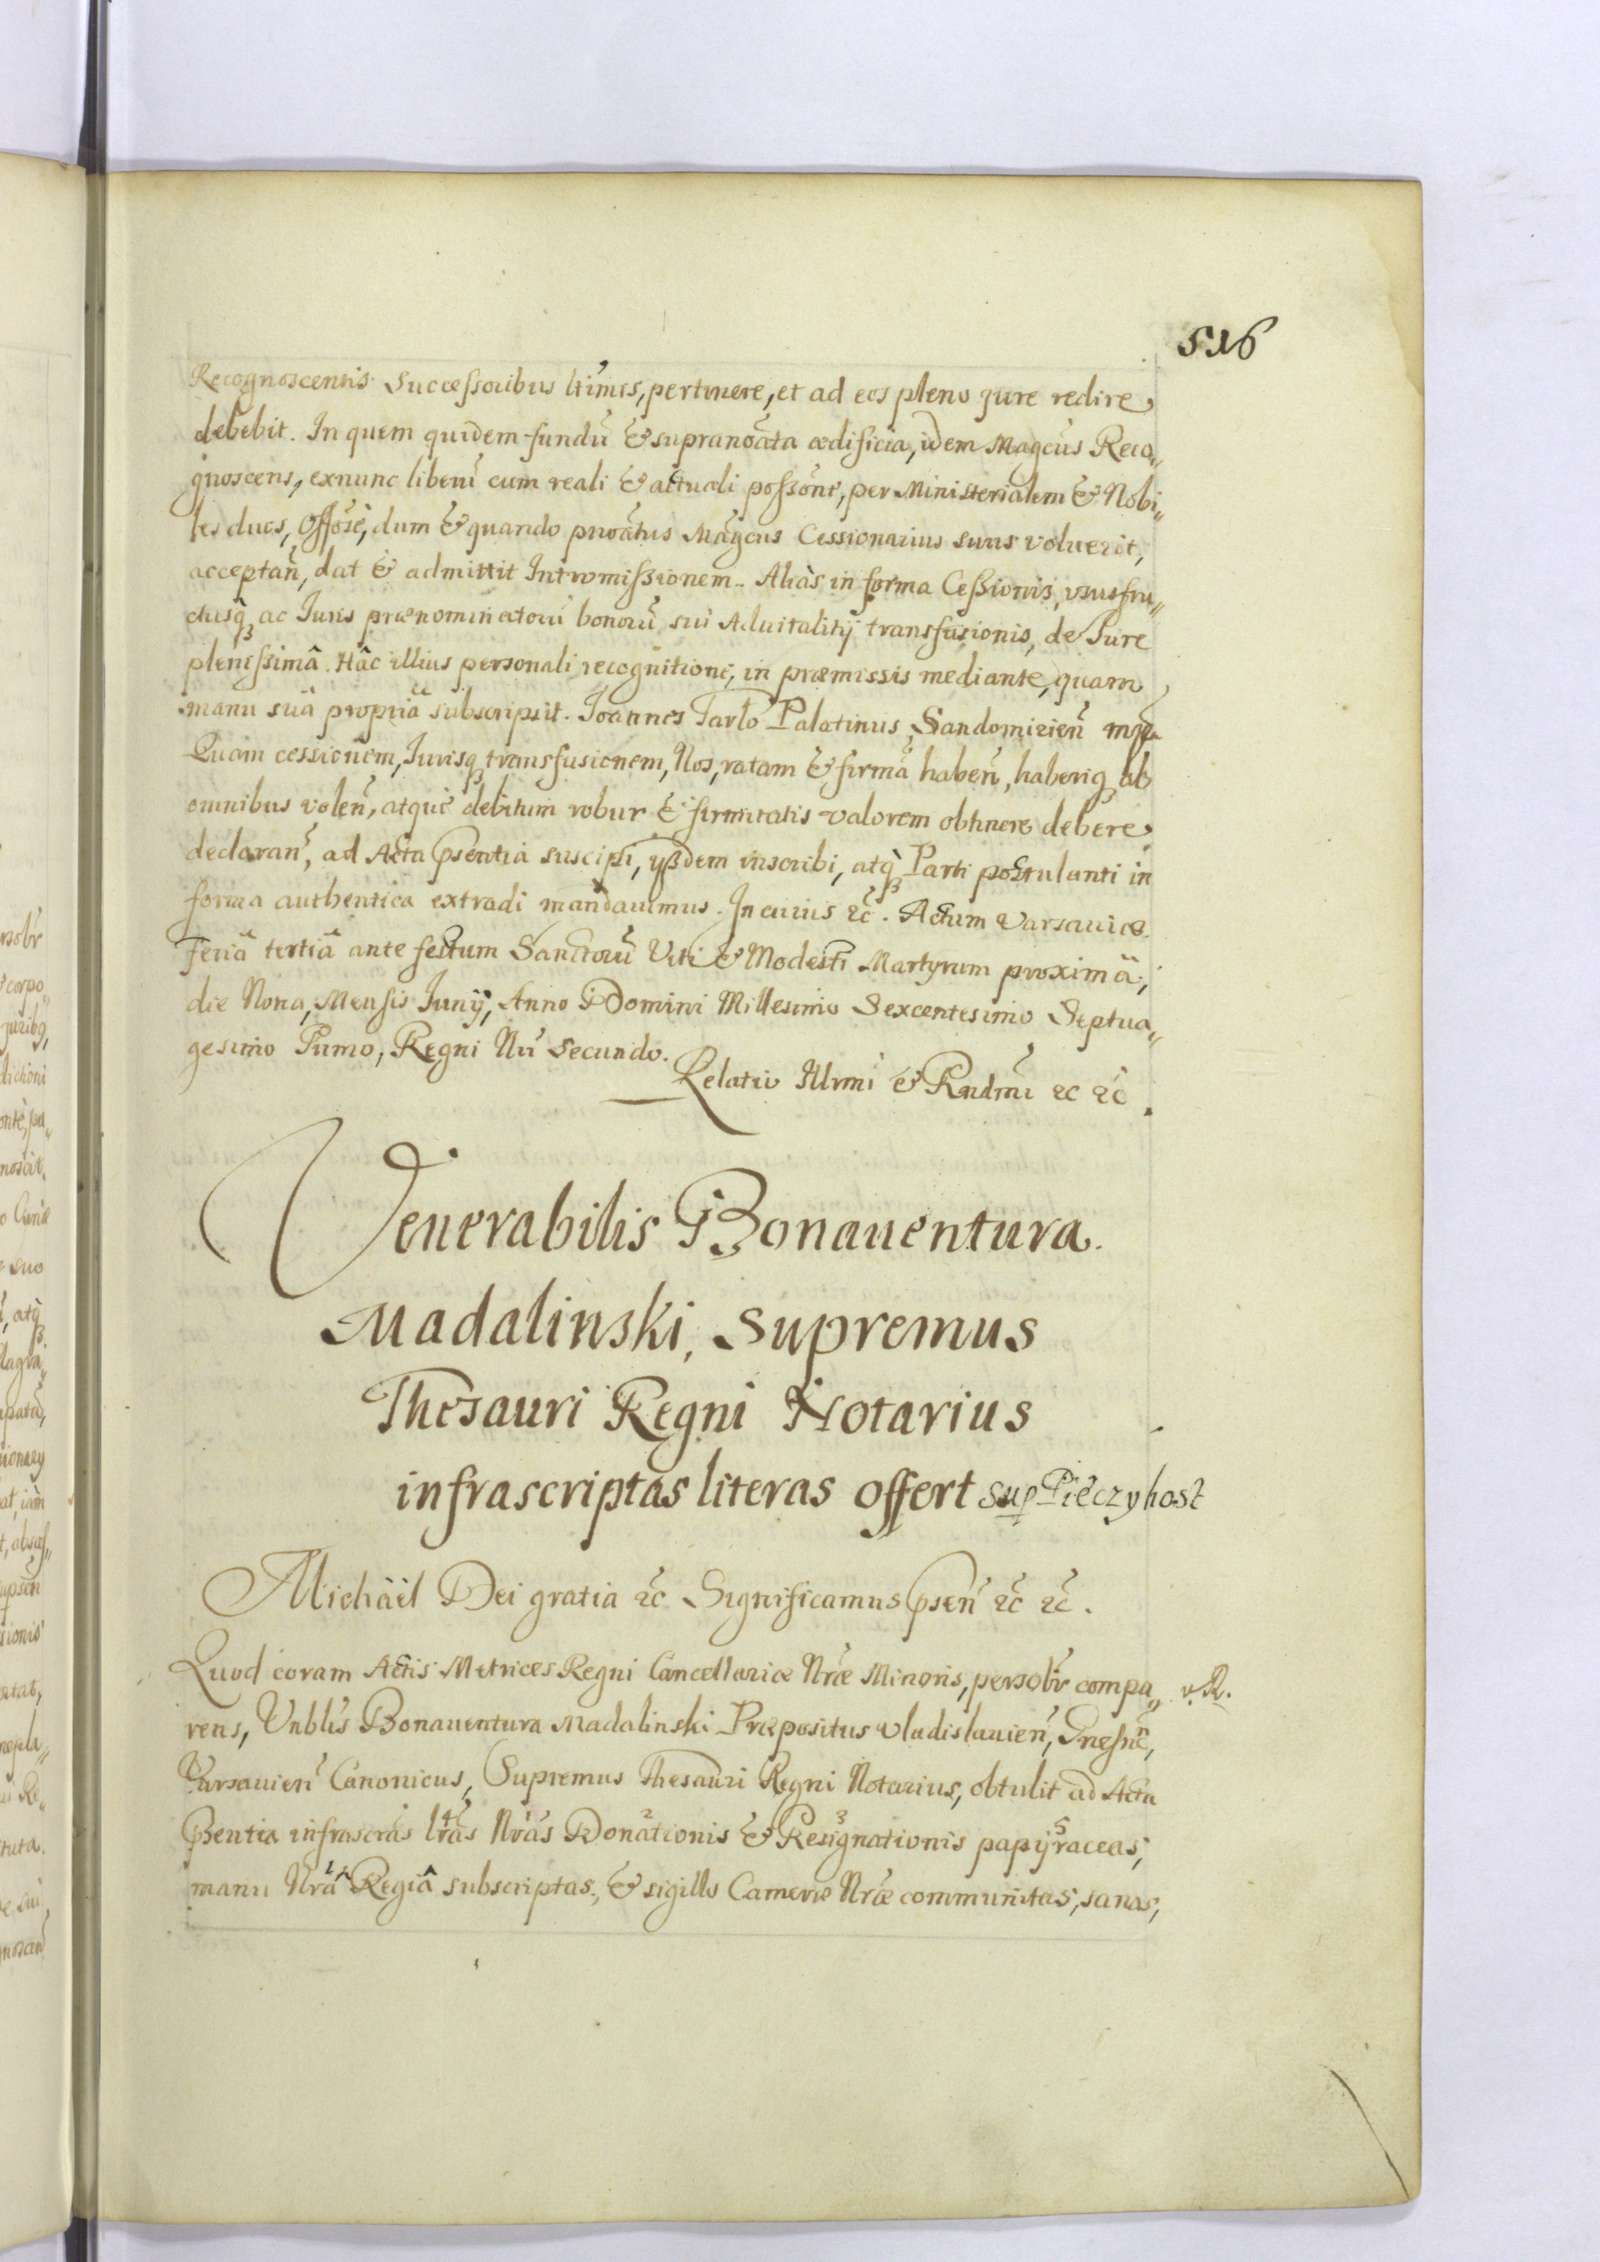 516
Recognoscentis Successoribus ltimis, pertinere, et ad eos pleno jure redire
debebit. In quem quidem fundũ & supranoãta ædificia, idem Magcus Reco„
gnoscens, exnunc liberũ cum reali & actuali possone, per Ministerialem & Nobi„
les duos, Offose, dum & quando pnoãtus Magcus Cessionarius suus voluerit,
acceptañ, dat & admittit Intromissionem. Aliàs in forma Cessionis, vsusfru„
ctusq, ac Juris prænominatorũ bonorũ sui Aduitalitÿ transfusionis, de Jure
plenissimâ. Hâc illius personali recognitione, in præmissis mediante, quam
manu suâ propriâ subscripsit. Joannes Tarło Palatinus Sandomirieñ mp
Quam cessionem, Jurisq transfusionem, Nos, ratam & firmã habeñ, haberiq ab
omnibus voleñ, atque debitum robur & firmitatis valorem obtinere debere
declarañ, ad Acta psentia suscipi, ijsdem inscribi, atq Parti postulanti in
forma authentica extradi mandauimus. In cuius &c. Actum Varsauiæ
Feriâ tertiâ ante festum Sanctorũ Viti & Modesti Martyrum proximâ,
die Nona, Mensis Junij, Anno Domini Millesimo Sexcentesimo Septua„
gesimo Primo, Regni Nri Secundo.
Relatio Illrmi & Rndmi &c &c.
Venerabilis Bonauentura
Madalinski, Supremus
Thesauri Regni Notarius
infrascriptas literas offert sup Pieczyhost
Michäel Dei gratia &c Significamus pseñ &c &c.
Quod coram Actis Metrices Regni Cancellariæ Nræ Minoris, persolr compa„ v. R.
rens, Vnblis Bonauentura Madalinski Præpositus Vladislauieñ, Gnesnẽ,
Varsauieñ Canonicus, Supremus Thesauri Regni Notarius, obtulit ad Acta
psentia infrascras lras Nras Donationis & Resignationis papÿraceas,
manu Nrâ Regiâ subscriptas, & sigillo Cameræ Nræ communitas, sanas,